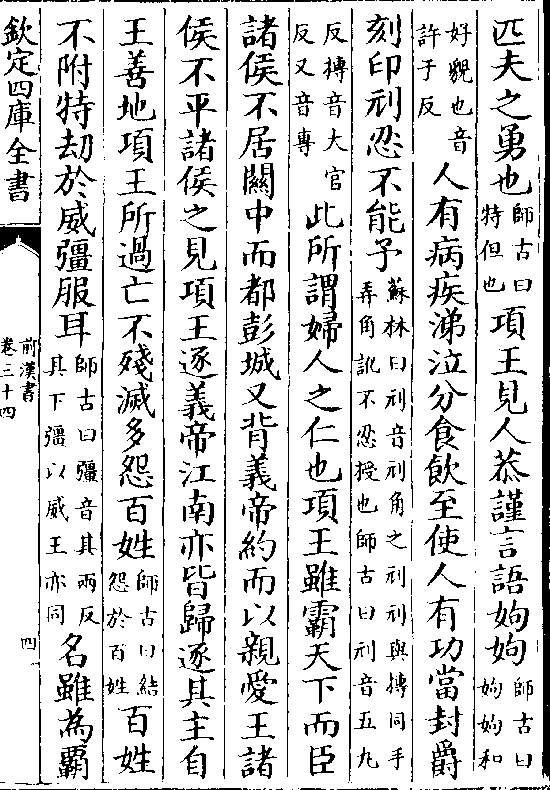 匹夫之勇也師古曰特但也項王見人恭謹言語姁姁師古曰姁姁和
好貌也音許于反人有病疾涕泣分食飲至使人有功當封爵
刻印刓忍不能予蘇林曰刓音刓角之刓刓與摶同手弄角訛不忍授也師古曰刓音五丸
反摶音大官反又音專此所謂婦人之仁也項王雖霸天下而臣
諸侯不居關中而都彭城又背義帝約而以親愛王諸
侯不平諸侯之見項王逐義帝江南亦皆歸逐其主自
王善地項王所過亡不殘滅多怨百姓師古曰結怨於百姓百姓
不附特劫於威彊服耳師古曰彊音其兩反其下彊以威王亦同名雖為霸
欽定四庫全書
前漢書
卷三十四
四